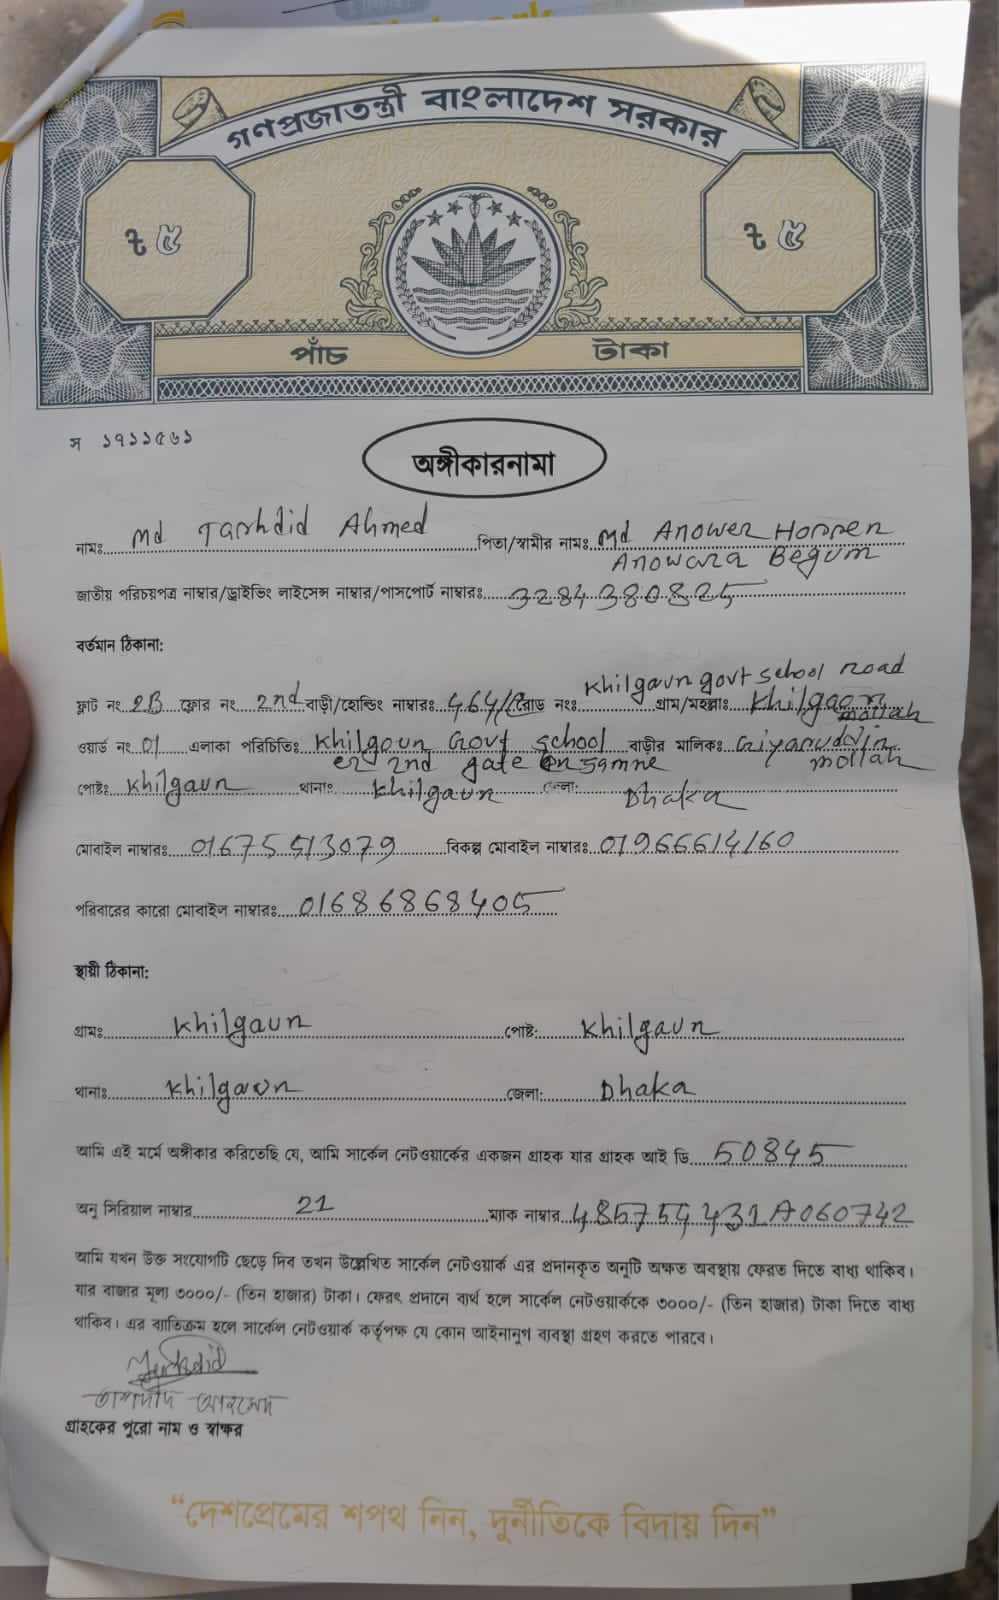 গণপ্রজাতন্ত্রী বাংলাদেশ সরকার
৳ ৫ ৳ ৫
পাঁচ টাকা
স ১৭১১৫৬১
অঙ্গীকারনামা
নামঃ Md Tarhdid Ahmed পিতা/স্বামীর নামঃ Md Anower Hossen
Anowara Begum
জাতীয় পরিচয়পত্র নাম্বার/ড্রাইভিং লাইসেন্স নাম্বার/পাসপোর্ট নাম্বারঃ 3284380825
বর্তমান ঠিকানা:
Khilgaun govt school road
ফ্লাট নং 2B ফ্লোর নং 2nd বাড়ী/হোল্ডিং নাম্বারঃ 464/ রোড নংঃ গ্রাম/মহল্লাঃ Khilgaon
mollah
ওয়ার্ড নং 01 এলাকা পরিচিতিঃ Khilgaun Govt school বাড়ীর মালিকঃ Giyasuddin
er 2nd gate samne mollah
পোষ্টঃ Khilgaun থানাঃ Khilgaun জেলা: Dhaka
মোবাইল নাম্বারঃ 01675513079 বিকল্প মোবাইল নাম্বারঃ 01966614160
পরিবারের কারো মোবাইল নাম্বারঃ 01686868405
স্থায়ী ঠিকানা:
গ্রামঃ Khilgaun পোষ্ট: Khilgaun
থানাঃ Khilgaun জেলা: Dhaka
আমি এই মর্মে অঙ্গীকার করিতেছি যে, আমি সার্কেল নেটওয়ার্কের একজন গ্রাহক যার গ্রাহক আই ডি 50845
অনু সিরিয়াল নাম্বার 21 ম্যাক নাম্বার 485754431A060742
আমি যখন উক্ত সংযোগটি ছেড়ে দিব তখন উল্লেখিত সার্কেল নেটওয়ার্ক এর প্রদানকৃত অনুটি অক্ষত অবস্থায় ফেরত দিতে বাধ্য থাকিব।
যার বাজার মূল্য ৩০০০/- (তিন হাজার) টাকা। ফেরৎ প্রদানে ব্যর্থ হলে সার্কেল নেটওয়ার্ককে ৩০০০/- (তিন হাজার) টাকা দিতে বাধ্য
থাকিব। এর ব্যতিক্রম হলে সার্কেল নেটওয়ার্ক কর্তৃপক্ষ যে কোন আইনানুগ ব্যবস্থা গ্রহণ করতে পারবে।
তাশদীদ আহমেদ
গ্রাহকের পুরো নাম ও স্বাক্ষর
“দেশপ্রেমের শপথ নিন, দুর্নীতিকে বিদায় দিন”